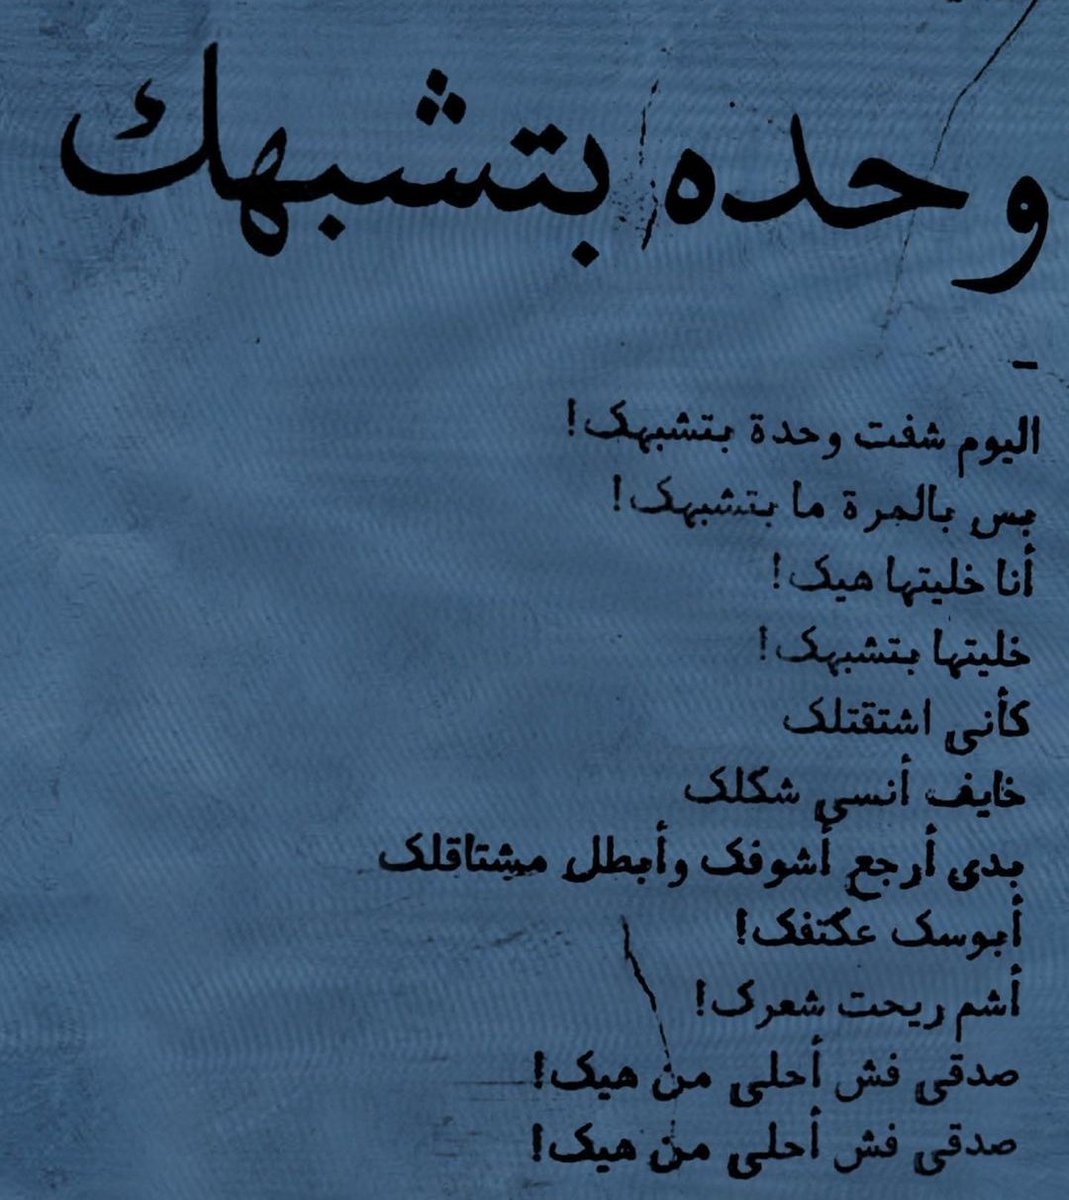 وحده بتشبهك
-
اليوم شفت وحدة بتشبهک!
بس بالمرة ما بتشبهک!
أنا خليتها هيک!
خليتها بتشبهک!
كأنى اشتقتلک
خايف أنسي شكلک
بدى أرجع أشوفک وأبطل مشتاقلک
أبوسک عكتفک!
أشم ريحت شعرک!
صدقى فش أحلى من هيک!
صدقى فش أحلى من هيک!